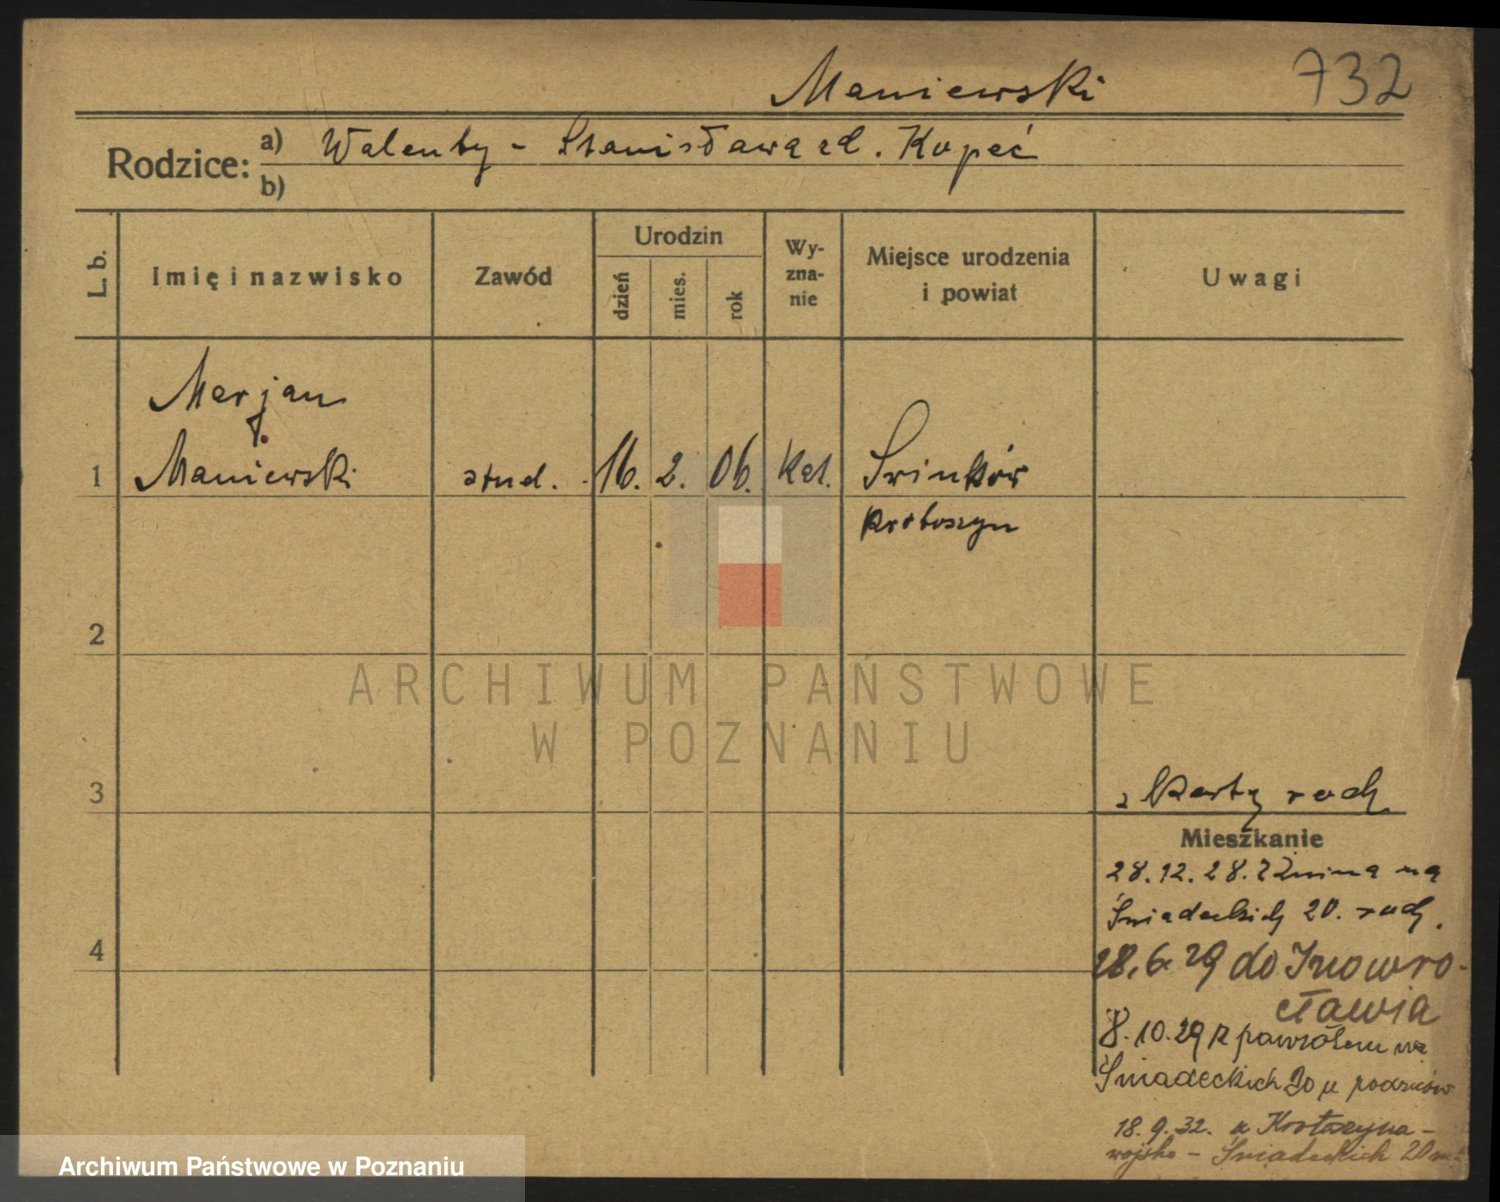 Maniewski 732
Rodzice: a) Walenty - Stanisława zd. Kopeć
b)
L. b. Imię i nazwisko Zawód Urodzin dzień mies. rok Wy-zna-nie Miejsce urodzenia i powiat Uwagi
Marjan
1 Maniewski stud. 16. 2. 06. Kat. Świnków
Krotoszyn
2
ARCHIWUM PAŃSTWOWE
W POZNANIU
3 z karty rodz.
Mieszkanie
28.12.28. z Żnina na
4 Śniadeckich 20. rodz.
28.6.29 do Inowro-
cławia
8.10.29 z powrotem na
Śniadeckich 20 u rodziców
18.9.32. z Krotoszyna -
wojsko - Śniadeckich 20
Archiwum Państwowe w Poznaniu